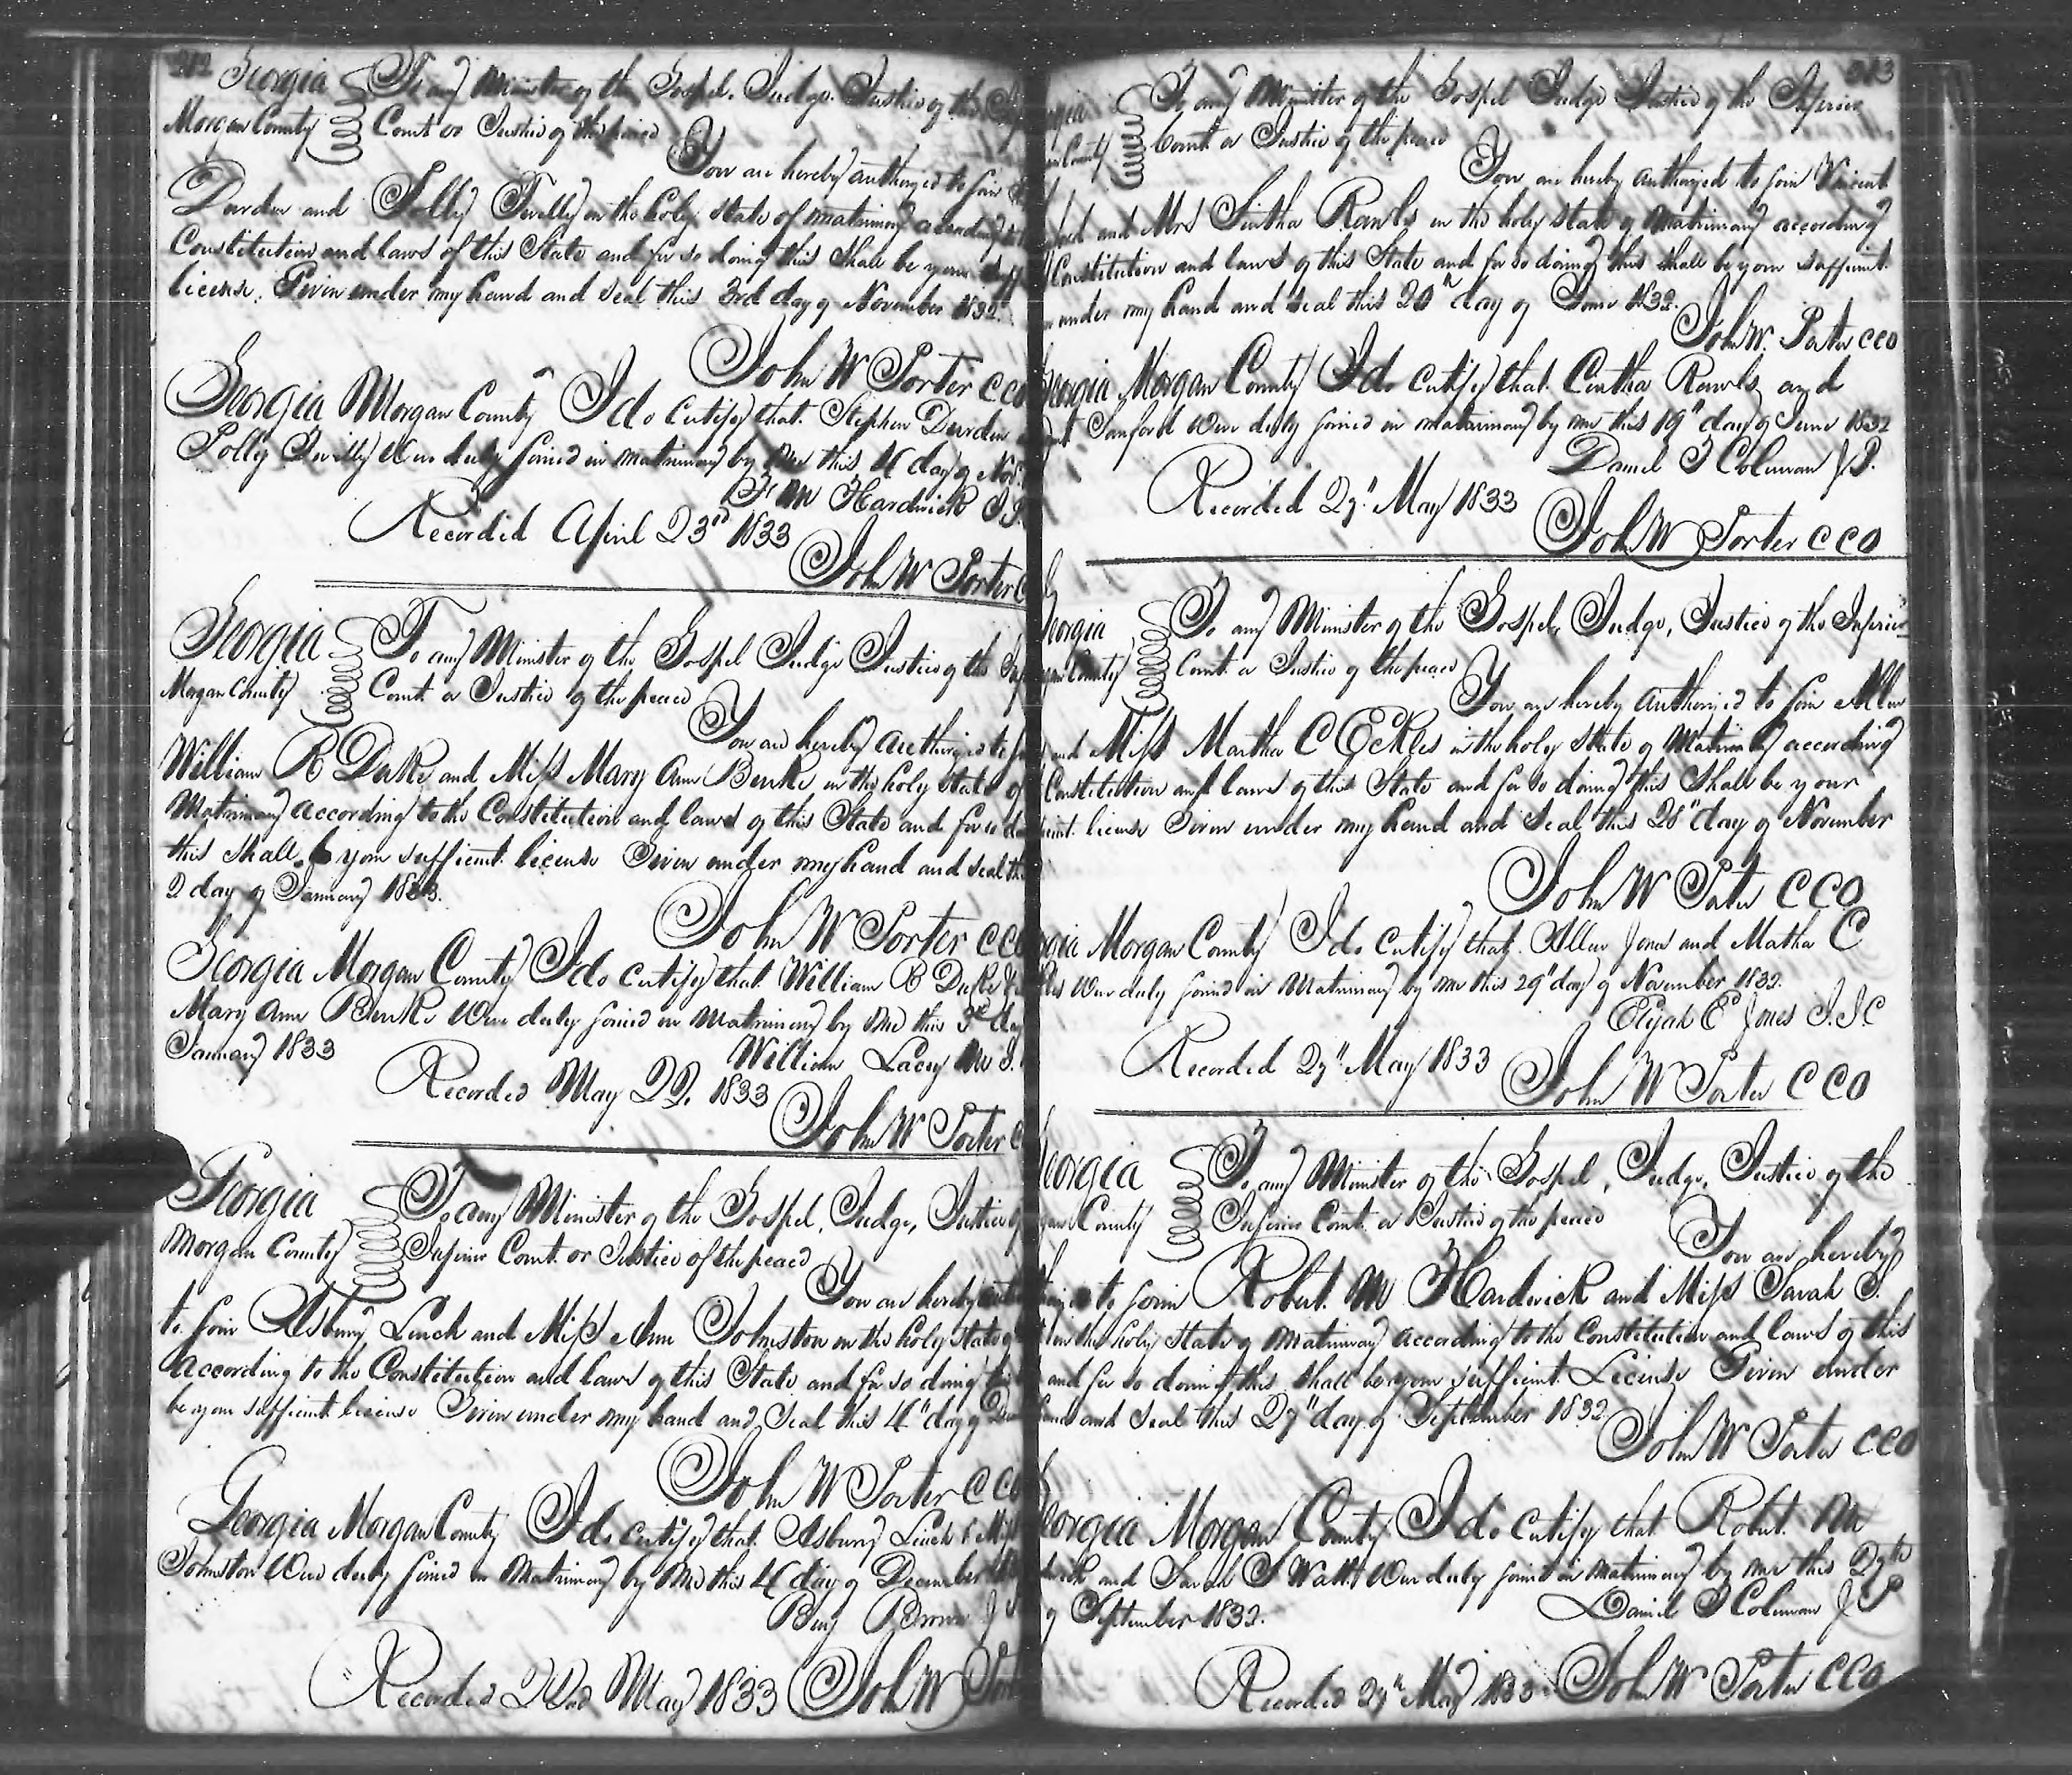 212 Georgia To any Minister of the Gospel, Judge, Justice of the
Morgan County Court or Justice of the peace
You are hereby authorized to join
Durden and Polly in the holy state of matrimony according to
Constitution and laws of this State and for so doing this Shall be your
license. Given under my hand and seal this 3rd day of November 1832
John W Porter CCO
Georgia Morgan County I do certify that Stephen Durden
Polly were duly joined in matrimony by me this 4 day of Nov
M Hardwick J.P.
Recorded April 23rd 1833
John W Porter
Georgia To any Minister of the Gospel Judge Justice of the
Morgan County Court or Justice of the peace
You are hereby authorized to
William R Duke and Miss Mary Ann in the holy State of
Matrimony according to the Constitution and laws of this State and for so
this Shall be your sufficient license Given under my hand and seal
2 day of January 1833.
John W Porter CCO
Georgia Morgan County I do certify that William R Duke
Mary Ann were duly joined in Matrimony by me this 3rd day
January 1833
William Lacey
Recorded May 22, 1833
John W Porter
Georgia To any Minister of the Gospel, Judge, Justice of
Morgan County Inferior Court or Justice of the peace
You are hereby
to join Asbury Linch and Miss Ann Johnston in the holy State of
according to the Constitution and laws of this State and for so doing
be your sufficient license Given under my hand and Seal this 4th day of
John W Porter CCO
Georgia Morgan County I do certify that Asbury Linch & Miss
Johnston were duly joined in Matrimony by me this 4 day of December
Benj Brown J P
Recorded 22nd May 1833 John W
213
To any Minister of the Gospel Judge Justice of the Inferior
County Court or Justice of the peace
You are hereby authorized to join Vincent
and Mrs Sintha Rawls in the holy state of Matrimony according
Constitution and laws of this State and for so doing this shall be your sufficient
under my hand and seal this 20th day of June 1832.
John W. Porter CCO
Georgia Morgan County I do certify that Cintha Rawls and
Sanford were duly joined in matrimony by me this 19th day of June 1832
Daniel Coleman J.P.
Recorded 27th May 1833
John W Porter CCO
Georgia To any Minister of the Gospel, Judge, Justice of the Inferior
County Court or Justice of the peace
You are hereby authorized to join Allen
and Miss Martha C Eckles in the holy state of Matrimony according
Constitution and laws of this State and for so doing this Shall be your
license Given under my hand and Seal this 28th day of November
John W Porter CCO
Morgan County I do certify that Allen Jones and Matha C
were duly joined in Matrimony by me this 29th day of November 1832.
Elijah E Jones J.I.C
Recorded 27th May 1833
John W Porter CCO
Georgia To any Minister of the Gospel, Judge, Justice of the
County Inferior Court or Justice of the peace
You are hereby
to join Robert M Hardwick and Miss Sarah S.
in the holy State of Matrimony according to the Constitution and laws of this
and for so doing this Shall be your sufficient License Given under
hand and Seal this 27th day of September 1832
John W Porter CCO
Georgia Morgan County I do certify that Robert M
and Sarah S Watt were duly joined in matrimony by me this 27th
of September 1832.
Daniel Coleman J P
Recorded 27th May 1833 John W Porter CCO